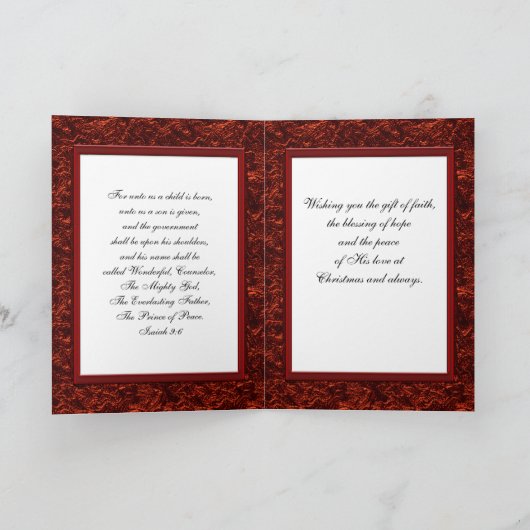 For unto us a child is born,
unto us a son is given,
and the government
shall be upon his shoulders,
and his name shall be
called Wonderful, Counselor,
The Mighty God,
The Everlasting Father,
The Prince of Peace.
Isaiah 9:6
Wishing you the gift of faith,
the blessing of hope
and the peace
of His love at
Christmas and always.